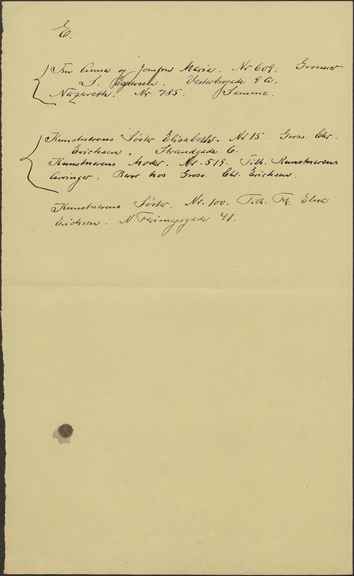 E.
Fru Anna og Jomfru Maria. Nr 609. Grosser
L. Vesterbrogade 8 A.
Nazareth. Nr. 785. Samme.
Kunstnerens Søster Elisabeth. Nr 15 Gross. Chr.
Erichsen. Strandgade 6.
Kunstnerens Moder. Nr. 519. Tilh. Kunstnerens
Arvinger. Beror hos Gross. Chr. Erichsen.
Kunstnerens Søster. Nr. 100. Tilh. Frk. Elise
Erichsen. N. Farimagsgade 41.